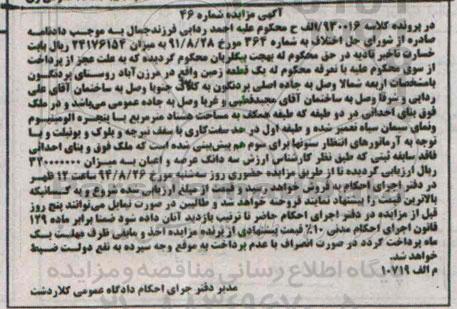 آگهی مزایده شماره ۴۶
در پرونده کلاسه ۹۳۰۰۱۶/الف ح محکوم علیه احمد ردایی فرزند جمال به موجب دادنامه
صادره از شورای حل اختلاف به شماره ۳۶۴ مورخ ۹۱/۸/۲۸ به میزان ۲۴۱۷۶۱۵۴ ریال بابت
خسارت تاخیر تادیه در حق محکوم له بهجت بیگلریان محکوم گردیده که به علت عجز از پرداخت
از سوی محکوم علیه با تعرفه محکوم له یک قطعه زمین واقع در مرزن آباد روستای پردنگون
بامشخصات اربعه شمالا وصل به جاده اصلی پردنگون به کلاک جنوبا وصل به ساختمان آقای علی
ردایی و شرقا وصل به ساختمان آقای مجیدقطبی و غربا وصل به جاده عمومی می‌باشد و در ملک
فوق بنای احداثی در دو طبقه که طبقه همکف به مساحت هشتاد مترمربع با پنجره الومینیوم
ونمای سیمان سیاه تعمیر شده و طبقه اول در حد سفت‌کاری با سقف تیرچه و بلوک و یونیلت و با
توجه به آرماتورهای انتظار ستونها برای سوم هم پیش‌بینی شده است که ملک فوق و بنای احداثی
فاقد سابقه ثبتی که طبق نظر کارشناس ارزش سه دانگ عرصه و اعیان به میزان ۳۲۰۰۰۰۰۰۰
ریال ارزیابی گردیده تا از طریق مزایده حضوری روز سه‌شنبه مورخ ۹۴/۸/۲۶ ساعت ۱۲ ظهر
در دفتر اجرای احکام به فروش خواهد رسید و قیمت از مبلغ ارزیابی شده شروع و به کسانیکه
بالاترین قیمت را پیشنهاد نمایند فروخته خواهد شد و طالبین در صورت تمایل می‌توانند پنج روز
قبل از مزایده در دفتر اجرای احکام حاضر تا ترتیب بازدید آنان داده شود ضمنا برابر ماده ۱۲۹
قانون اجرای احکام مدنی ۱۰٪ قیمت پیشنهادی از برنده مزایده اخذ و مابقی ظرف مهلت یک
ماه پرداخت گردد در صورت انصراف یا عدم پرداخت به موقع وجه سپرده به نفع دولت ضبط
خواهد شد.
م الف ۱۰۷۱۹
مدیر دفتر جرای احکام دادگاه عمومی کلاردشت
پایگاه اطلاع رسانی مناقصه و مزایده